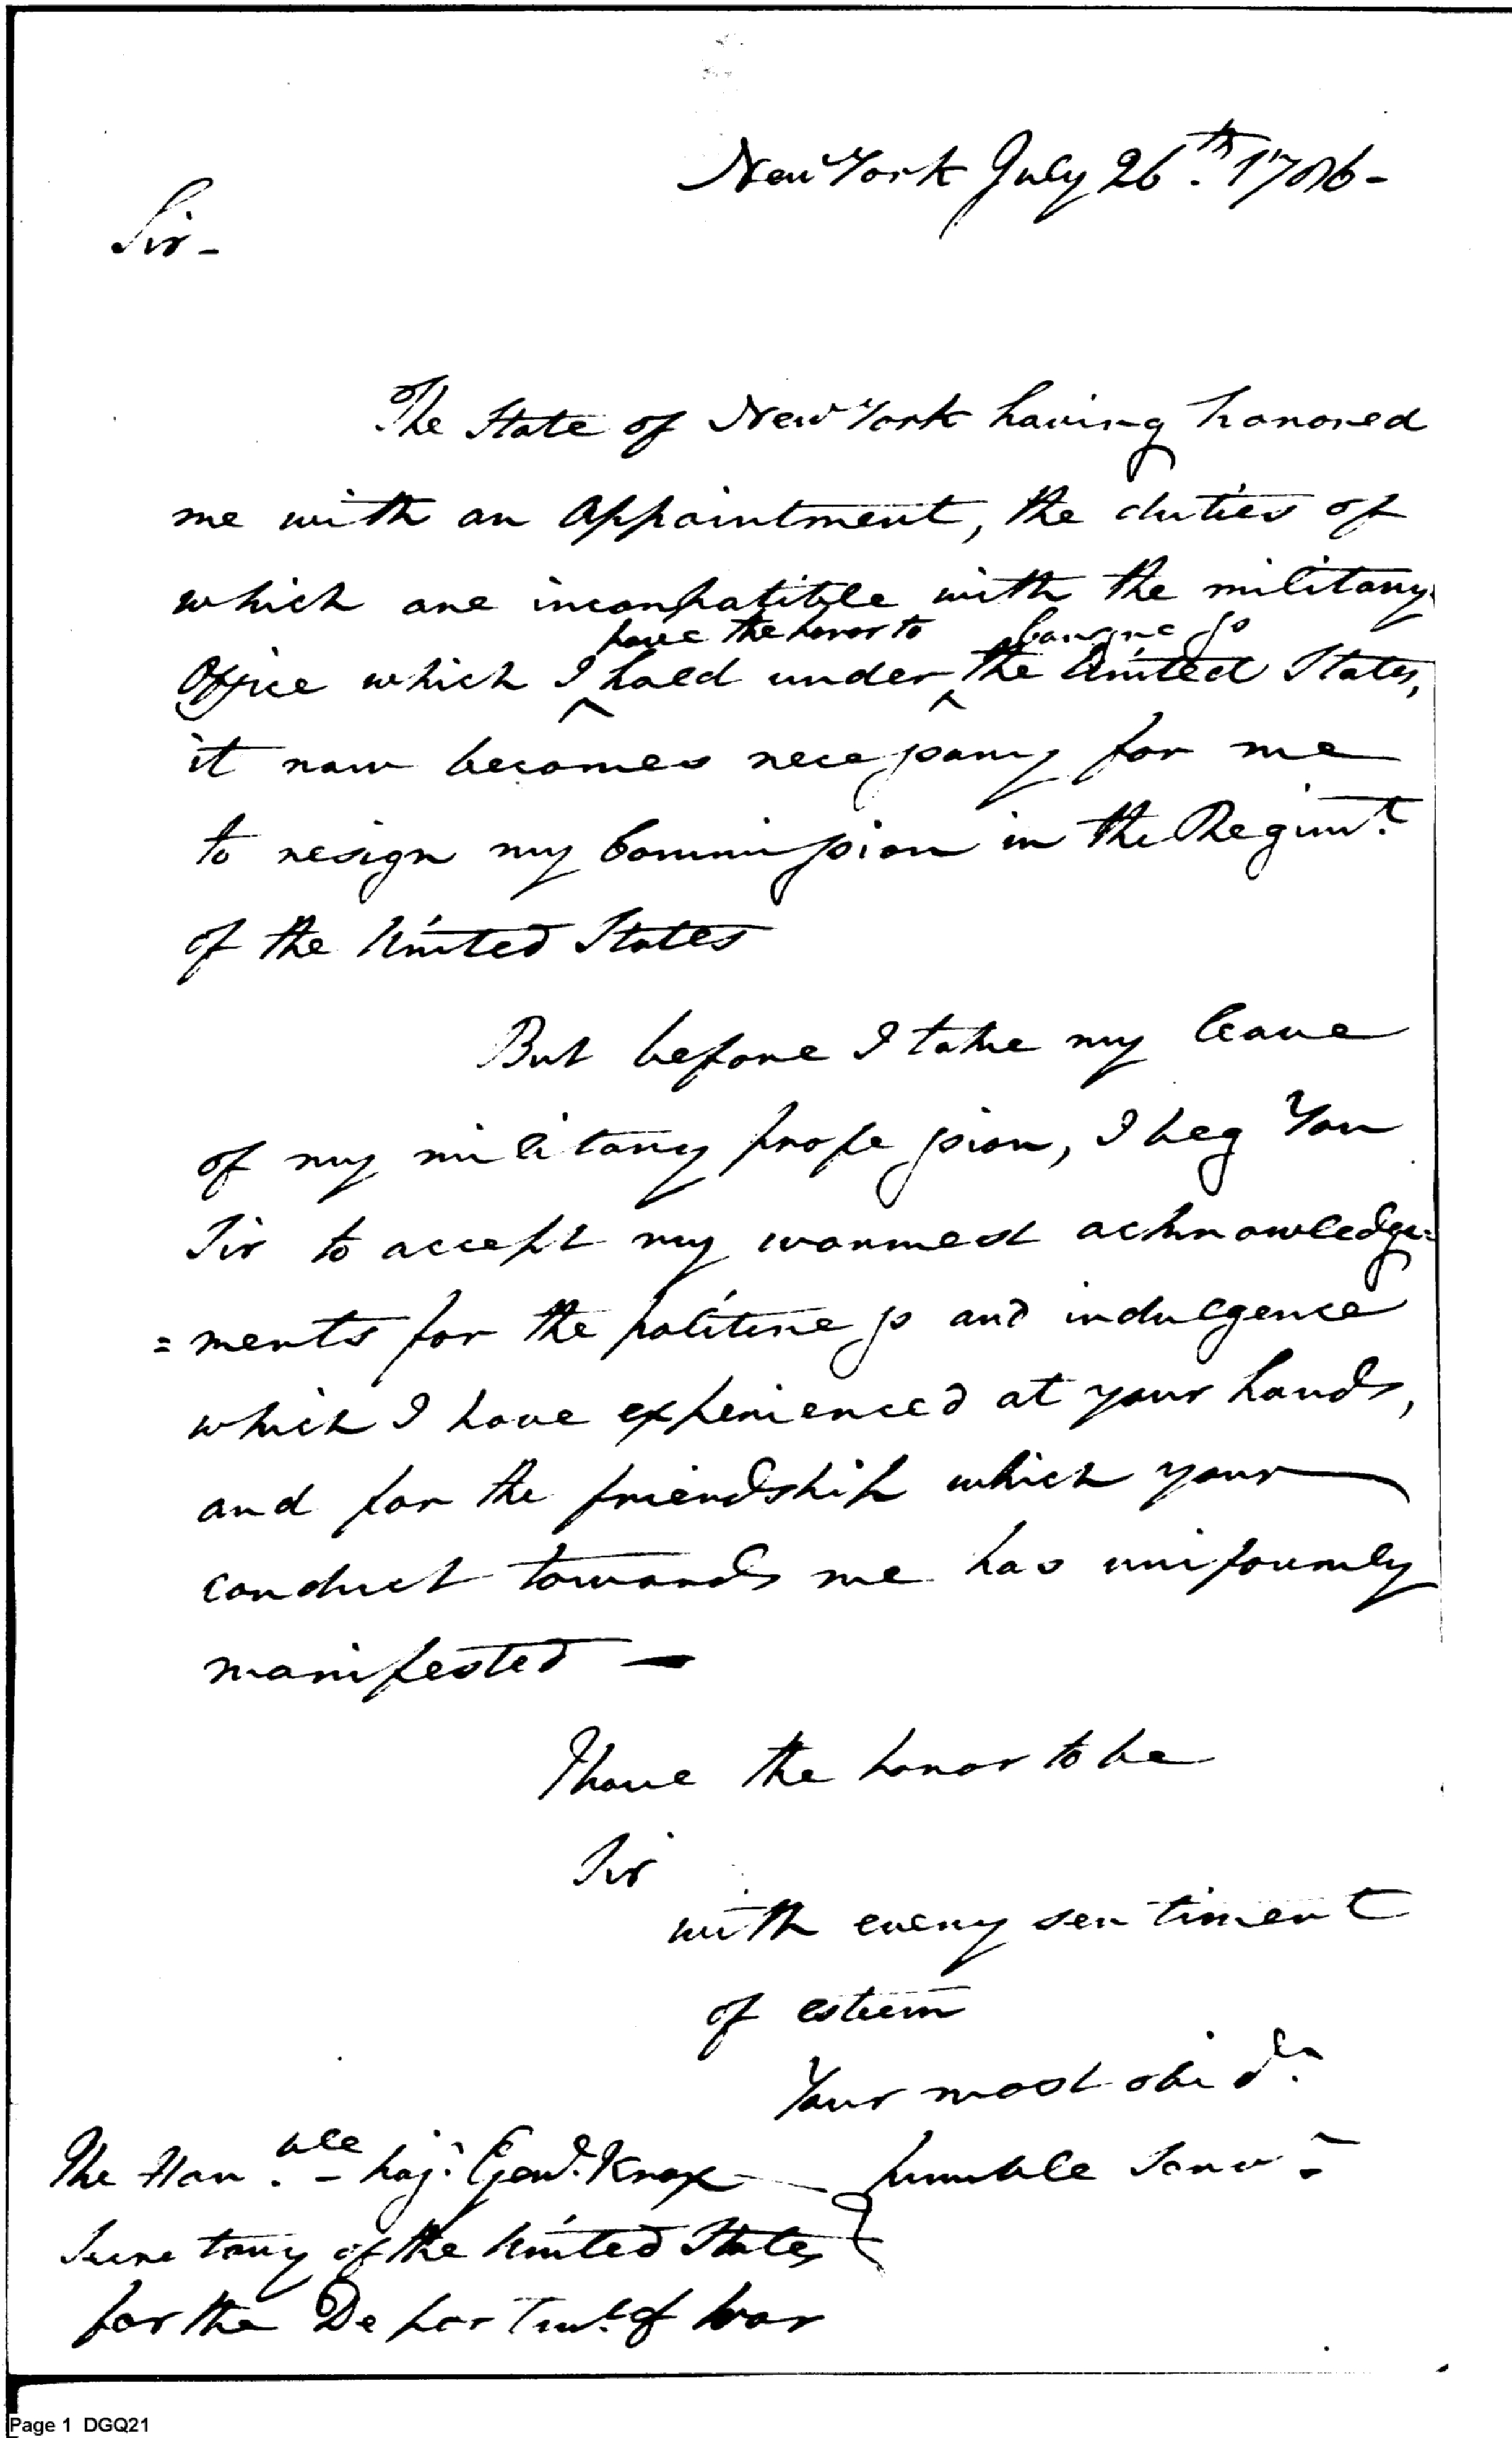 New York July 26.th 1786-
Sir-
The State of New York having honored
me with an Appointment, the duties of
which are incompatible with the military
have the honor to Congress
Office which I hold under the United States,
it now becomes necessary for me
to resign my Commission in the Regimt.
of the United States
But before I take my leave
of my military profession, I beg You
Sir to accept my warmest acknowledge=
=ments for the politeness and indulgence
which I have experienced at your hands,
and for the friendship which your
conduct towards me has uniformly
manifested —
I have the honor to be
Sir
with every sentiment
of esteem
Your most obed.
The Hon.ble - Maj. Genl. Knox — humble Serv.t
Secretary of the United States
for the Departmt. of War
Page 1 DGQ21